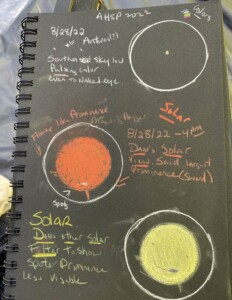 AHSP 2022
8/28/22
Southern Sky low
Pulsing color
Even to Naked eye.
Solar
8/28/22 - 4pm
Dan's Solar
View. Said Impact
Prominence
Spots
Solar
Dans other Solar
Filter To Show
Spots. Prominence
Less Visible